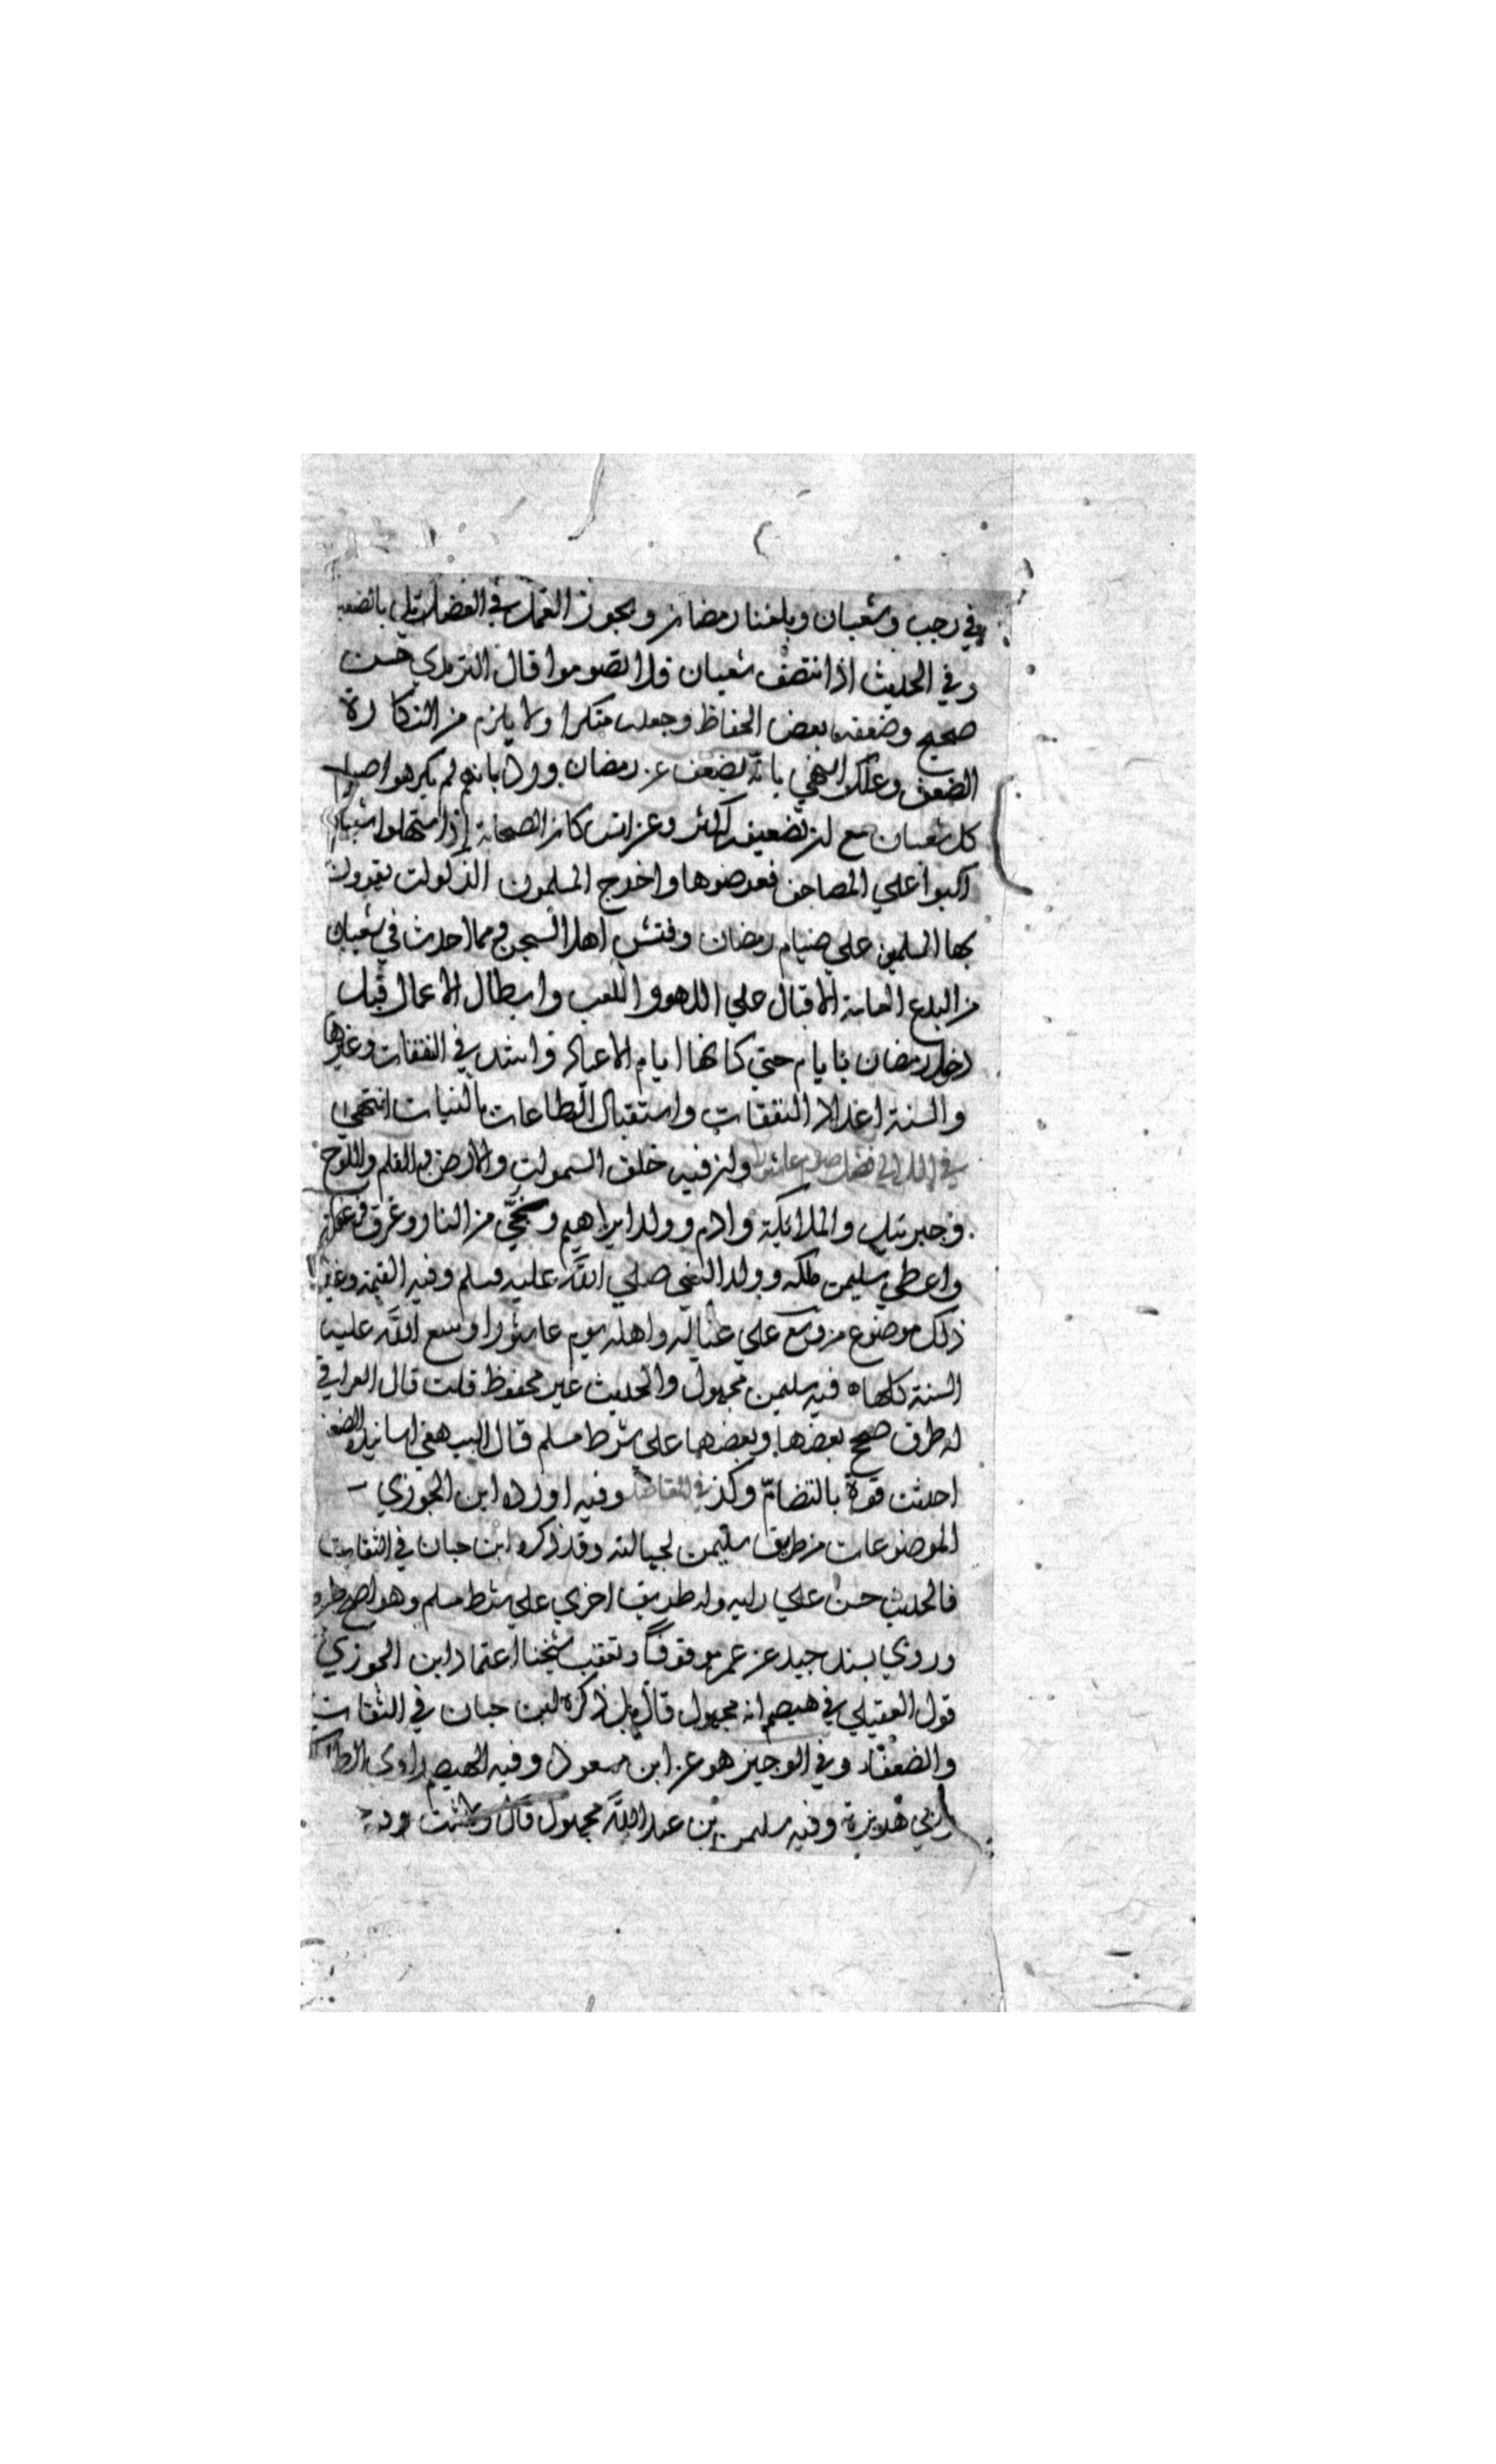 في رجب وشعبان وبلغنا رمضان ويجوز العمل في الفضائل بالضعيف
وفي الحديث اذا انتصف شعبان فلا تصوموا قال الترمذي حسن
صحيح وضعفه بعض الحفاظ وجعله منكرا ولا يلزم من النكارة
الضعف وعلل النهي بانه يضعف عن رمضان ورد بانهم لم يكرهوا صيام
كل شعبان مع ان تضعيفه اكثر وعن انس كان الصحابة اذا استهلوا شعبان
اكبوا علي المصاحف فعرضوها واخرج المسلمون الزكوات يقوون
بها المسلمين علي صيام رمضان وفتش اهل السجن ومما احدث في شعبان
من البدع العامة الاقبال علي اللهو واللعب وابطال الاعمال قبل
دخول رمضان بايام حتي كانها ايام الاعياد واشتد في النفقات وغيرها
والسنة اعداد النفقات واستقبال الطاعات بالنيات انتهي
في اللالي فضل صوم عاشورا وان فيه خلق السموات والارض والقلم واللوح
وجبرئيل والملائكة وادم وولد ابراهيم ونجي من النار وغرق فرعون
واعطي سليمن ملكه وولد النبي صلي الله عليه وسلم وفيه القيمة وغير
ذلك موضوع من وسع علي عياله واهله يوم عاشورا وسع الله عليه
السنة كلها ه فيه سليمن مجهول والحديث غير محفوظ قلت قال العراقي
له طرق صحح بعضها وبعضها علي شرط مسلم قال البيهقي اسانيده الضعيفة
احدثت قوة بالتضام وكذ في المقاصد وفيه اورده ابن الجوزي
الموضوعات من طريق سليمن لجهالته وقد ذكره ابن حبان في الثقات
فالحديث حسن علي رايه وله طريق اخري علي شرط مسلم وهو اصح طرقه
وروي بسند جيد عن عمر موقوفا وتعقب شيخنا اعتماد ابن الجوزي
قول العقيلي في هيصم انه مجهول قال بل ذكره ابن حبان في الثقات
والضعفاء وفي الوجيز هو عن ابن مسعود وفيه الهيصم راوي
وابي هريرة وفيه سليمن بن عبد الله مجهول قال